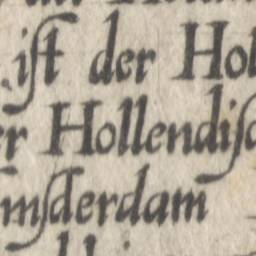 iſt der Hol
er Hollendiſc
mſderdam